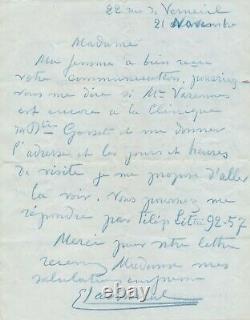 22 rue de Verneuil
21 Novembre
Madame
Ma femme a bien reçu
votre communication, pourriez
vous me dire si Mme Varennes
est encore à la Clinique
du Dr Gosset et me donner
l'adresse et les jours et heures
de visite je me propose d'aller
la voir. Vous pouvez me
répondre par Littré 92-57
Merci pour votre lettre
recevez Madame mes
salutations